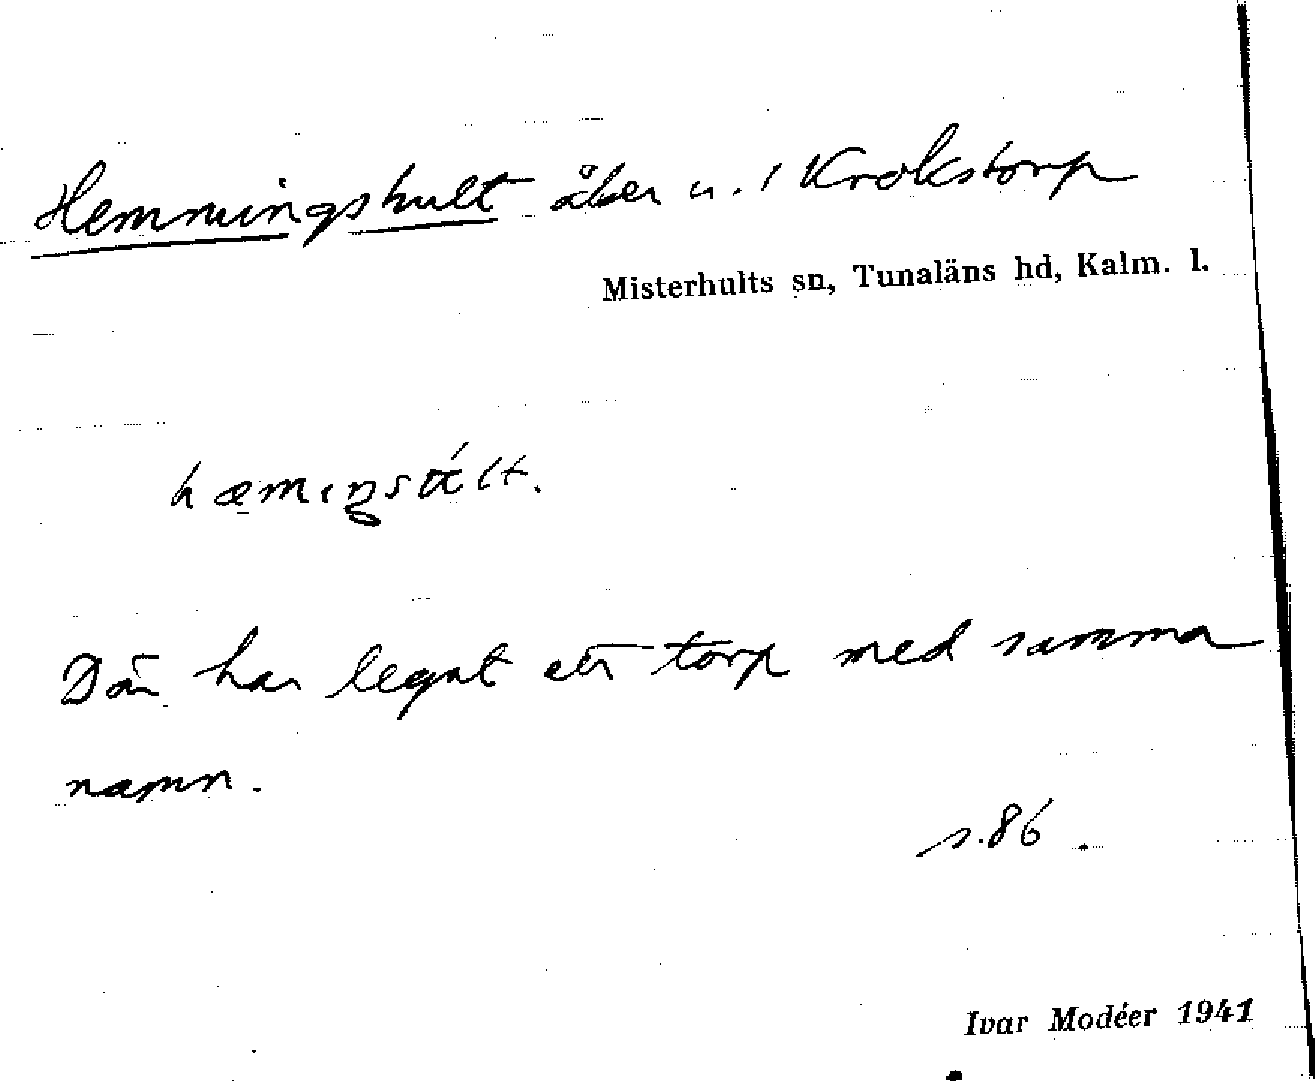 Hemmingshult åker u. / Krokstorp
Misterhults sn, Tunaläns hd, Kalm. l.
Där har legat ett torp med samma
namn.
s. 86.
Ivar Modéer 1941